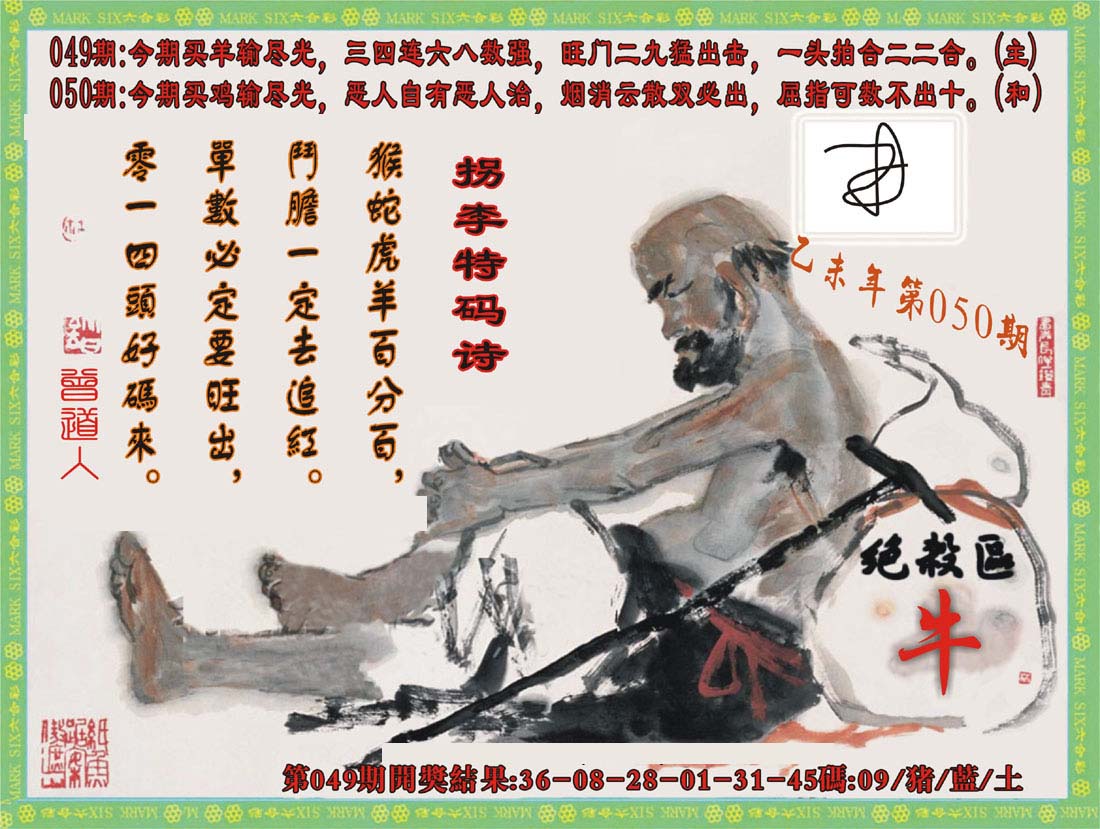 MARK SIX六合彩
049期:今期买羊输尽光，三四连六八数强，旺门二九猛出击，一头拍合二二合。(主)
050期:今期买鸡输尽光，恶人自有恶人治，烟消云散双必出，屈指可数不出十。(和)
拐李特码诗
猴蛇虎羊百分百，
鬥膽一定去追紅。
單數必定要旺出，
零一四頭好碼來。
曾道人
乙未年第050期
绝殺區
牛
第049期開獎結果:36-08-28-01-31-45碼:09/猪/藍/土